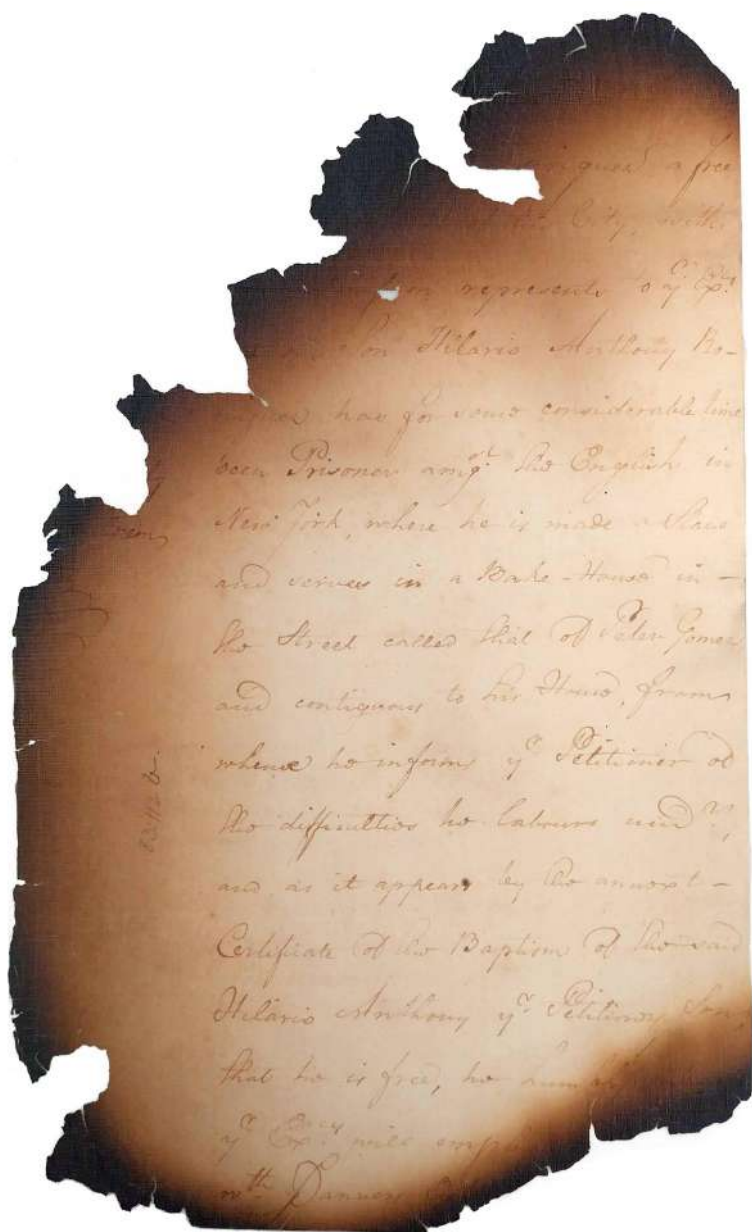 a free
City, with
represents to yr. Exy.
son Hilario Anthony Ro-
has for some considerable time
been Prisoner amgst. the English in
oem
New York, where he is made a Slave
and serves in a Bake-House in -
the Street called that of Peter Gomez
and contiguous to his House, from
whence he informs yr. Petitioner of
the difficulties he labours undr.,
and as it appears by the annext -
Certificate of the Baptism of the said
Hilario Anthony yr. Petitioners Son,
that he is free, he
yr. Excy. will
wth. Danvers